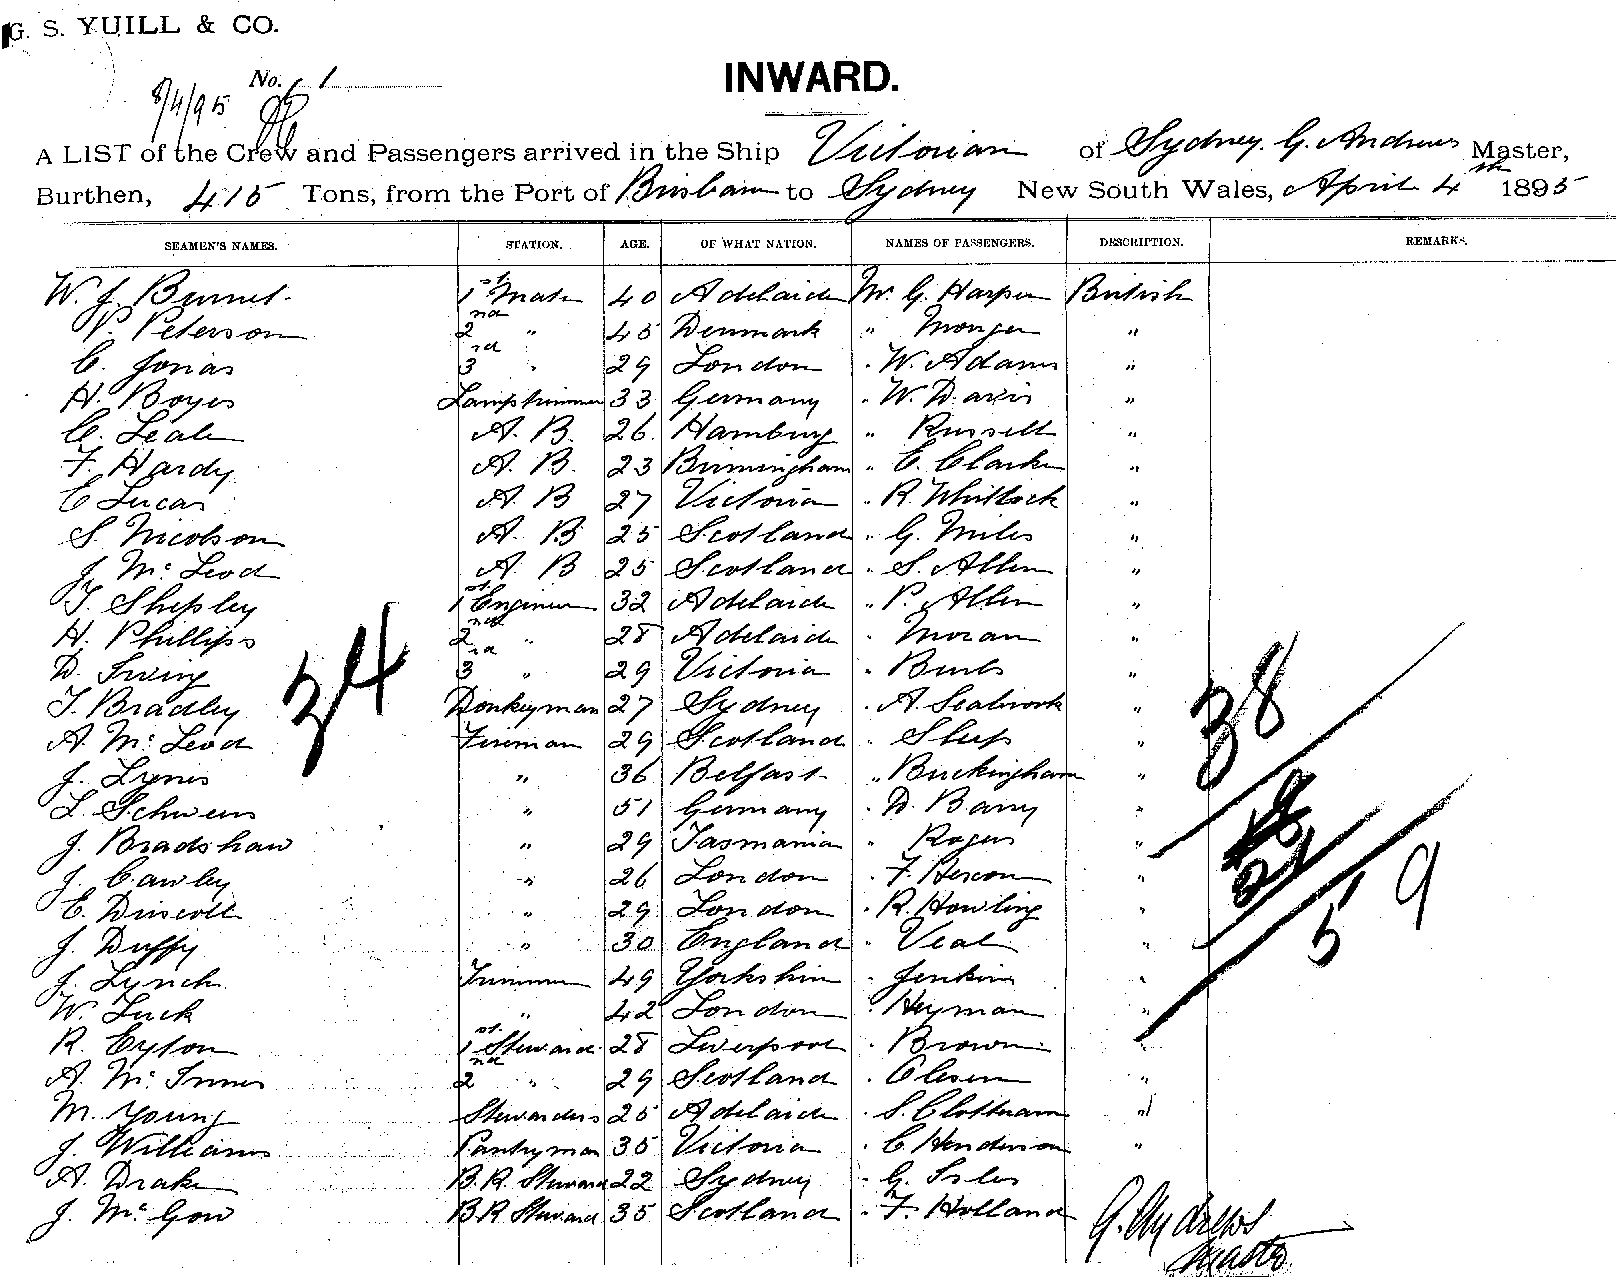 G. S. YUILL & CO.
No. 1
8/4/95
INWARD.
A LIST of the Crew and Passengers arrived in the Ship Victorian of Sydney. G. Andrews Master,
Burthen, 415 Tons, from the Port of Brisbane to Sydney New South Wales, April 4th 1895
SEAMEN'S NAMES. STATION. AGE. OF WHAT NATION. NAMES OF PASSENGERS. DESCRIPTION. REMARKS.
W. J. Burnet. 1st Mate 40 Adelaide Mr. G. Harper British
P. Peterson 2nd " 45 Denmark " Monger "
C. Jonas 3rd " 29 London " W. Adams "
H. Boyes Lamptrimmer 33 Germany " W. Davis "
C. Leale A. B. 26 Hamburg " Russell "
F. Hardy A. B. 23 Birmingham " E. Clarke "
E Lucas A. B 27 Victoria " R. Whitlock "
S. Nicolson A. B 25 Scotland " G. Miles "
J. McLeod A. B 25 Scotland " S. Allen "
T. Shepley 1st Engineer 32 Adelaide " P. Allen "
H. Phillips 2nd " 28 Adelaide " Moran "
D. Ewing 3rd " 29 Victoria " Burls "
T. Bradley Donkeyman 27 Sydney " A. Seabrook "
A. McLeod Fireman 29 Scotland " Sleep "
J. Lyons " 36 Belfast " Buckingham "
L. Schwens " 51 Germany " D. Barry "
J. Bradshaw " 29 Tasmania " Rogers "
J. Cawley " 26 London " F. Hescom "
E. Driscoll " 29 London " R. Howling "
J. Duffy " 30 England " Veal "
J. Lynch Trimmer 49 Yorkshire " Jenkins "
W. Luck " 42 London " Heyman "
R. Eyton 1st Steward 28 Liverpool " Brown "
A. McInnes 2nd " 29 Scotland " Olesen "
M. Young Stewardess 25 Adelaide " S. Clotheram "
J. Williams Pantryman 35 Victoria " C Henderson "
A. Drake B.R. Steward 22 Sydney " G. Isles
J. McGow B.R Steward 35 Scotland " F. Holland
34
38
21
59
G. Andrews
Master